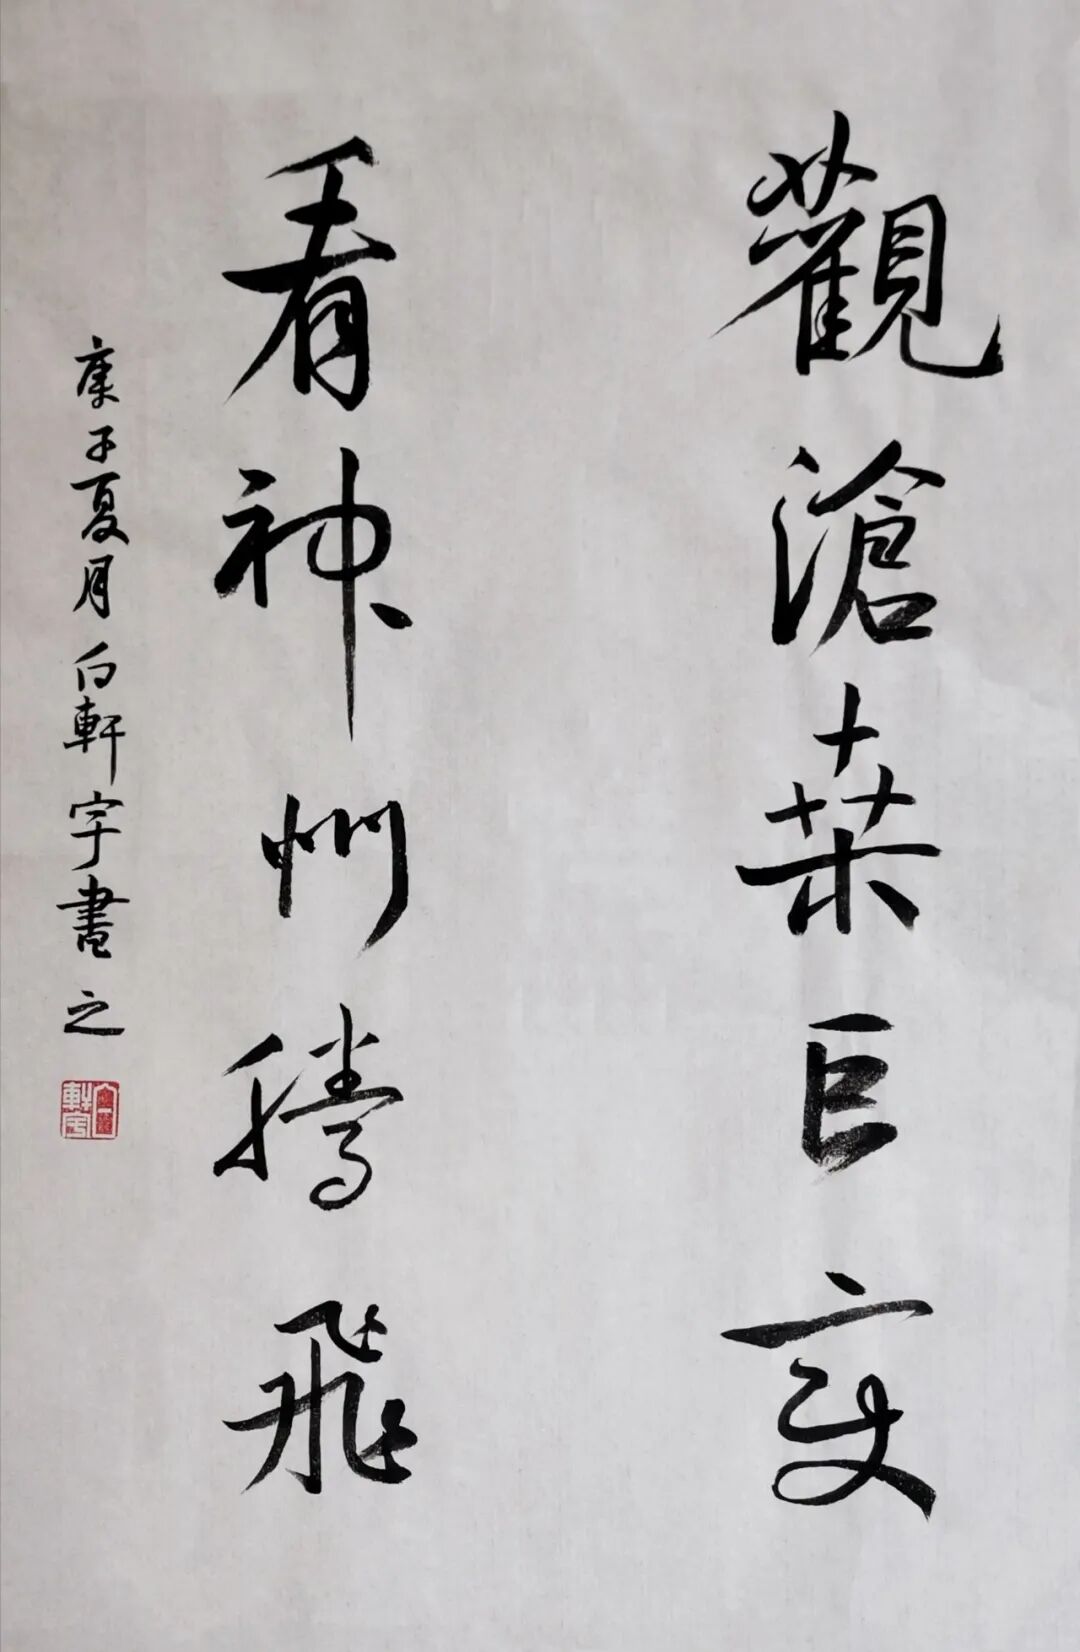 觀滄桑巨變
看神州騰飛
庚子夏月白軒宇書之